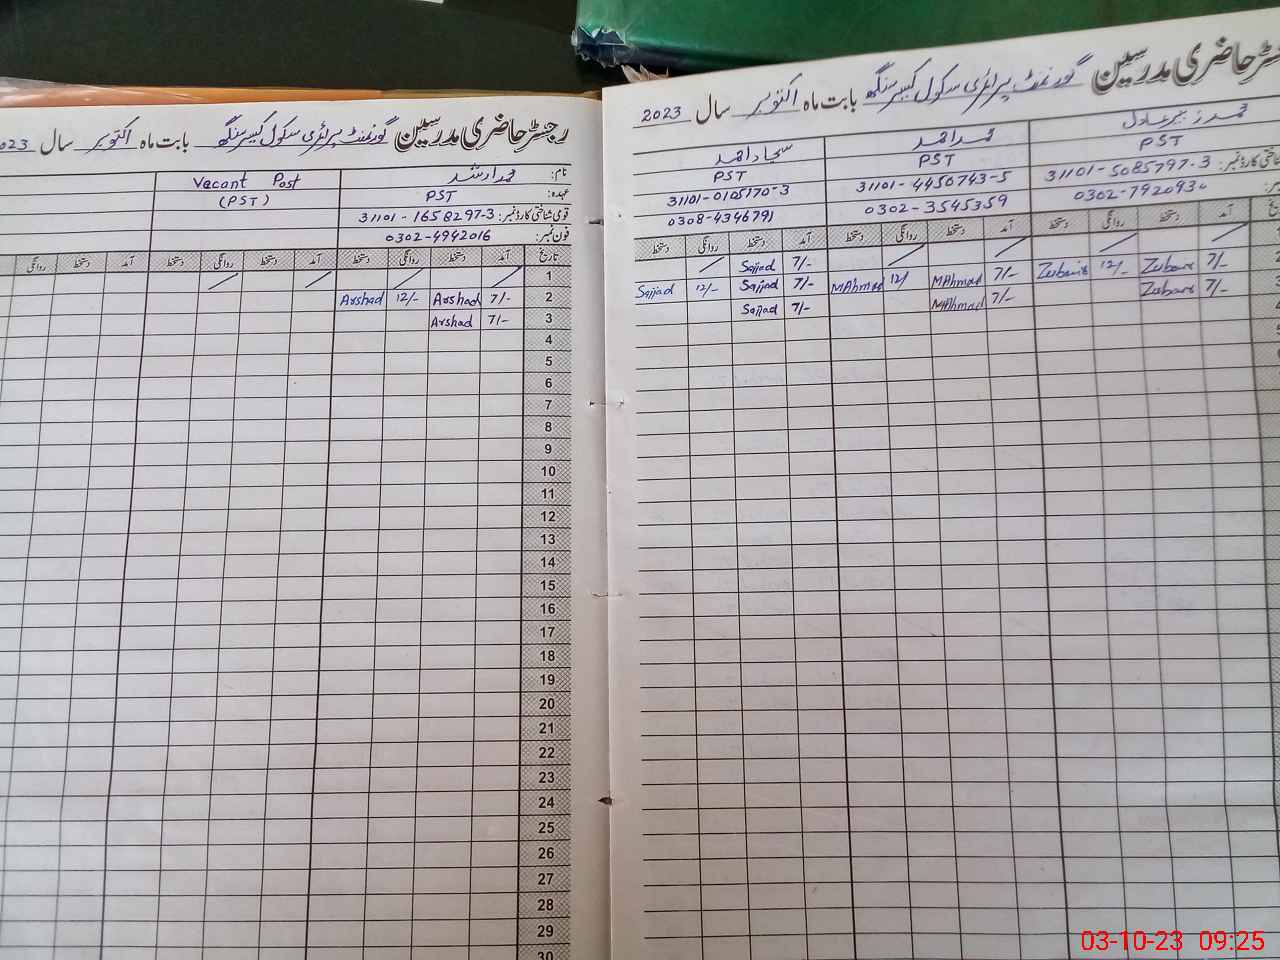 رجسٹر حاضری مدرسین گورنمنٹ پرائمری سکول کیسر سنگھ بابت ماہ اکتوبر سال 2023
نام: محمد ارشد
Vacant Post
عہدہ: PST
(PST)
قومی شناختی کارڈ نمبر: 31101-1658297-3
فون نمبر: 0302-4942016
تاریخ آمد دستخط روانگی دستخط آمد دستخط روانگی دستخط آمد دستخط روانگی
1
2 7/- Arshad 12/- Arshad
3 7/- Arshad
4
5
6
7
8
9
10
11
12
13
14
15
16
17
18
19
20
21
22
23
24
25
26
27
28
29
30
حاضری مدرسین گورنمنٹ پرائمری سکول کیسر سنگھ بابت ماہ اکتوبر سال 2023
محمد زبیر عادل محمد احمد سجاد احمد
PST PST PST
شناختی کارڈ نمبر: 31101-5085797-3 31101-4450743-5 31101-0105170-3
0302-7920930 0302-3545359 0308-4346791
آمد دستخط روانگی دستخط آمد دستخط روانگی دستخط آمد دستخط روانگی دستخط
7/- Sajjad
7/- Zubair 12/- Zubair 7/- MAhmad 12/ MAhmad 7/- Sajjad 12/- Sajjad
7/- Zubair 7/- MAhmad 7/- Sajjad
03-10-23 09:25